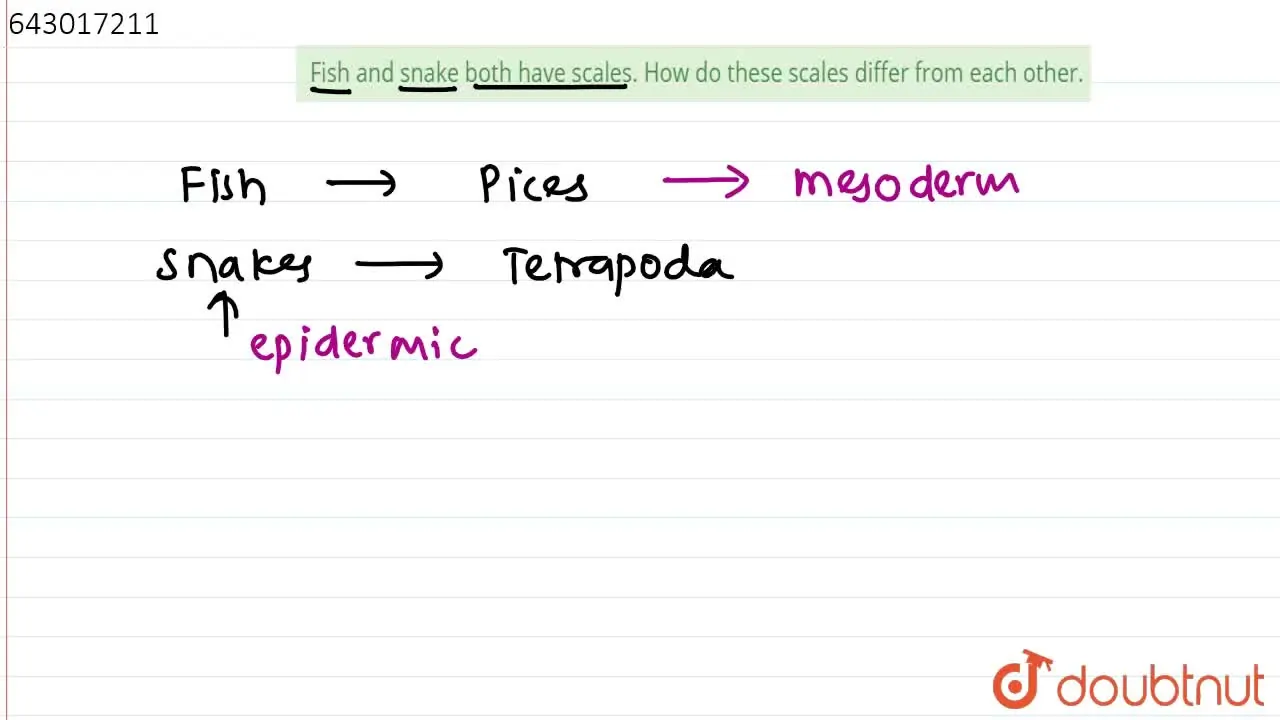 643017211
Fish and snake both have scales. How do these scales differ from each other.
Fish → Pices → mesoderm
Snakes → Tetrapoda
↑ epidermic
doubtnut